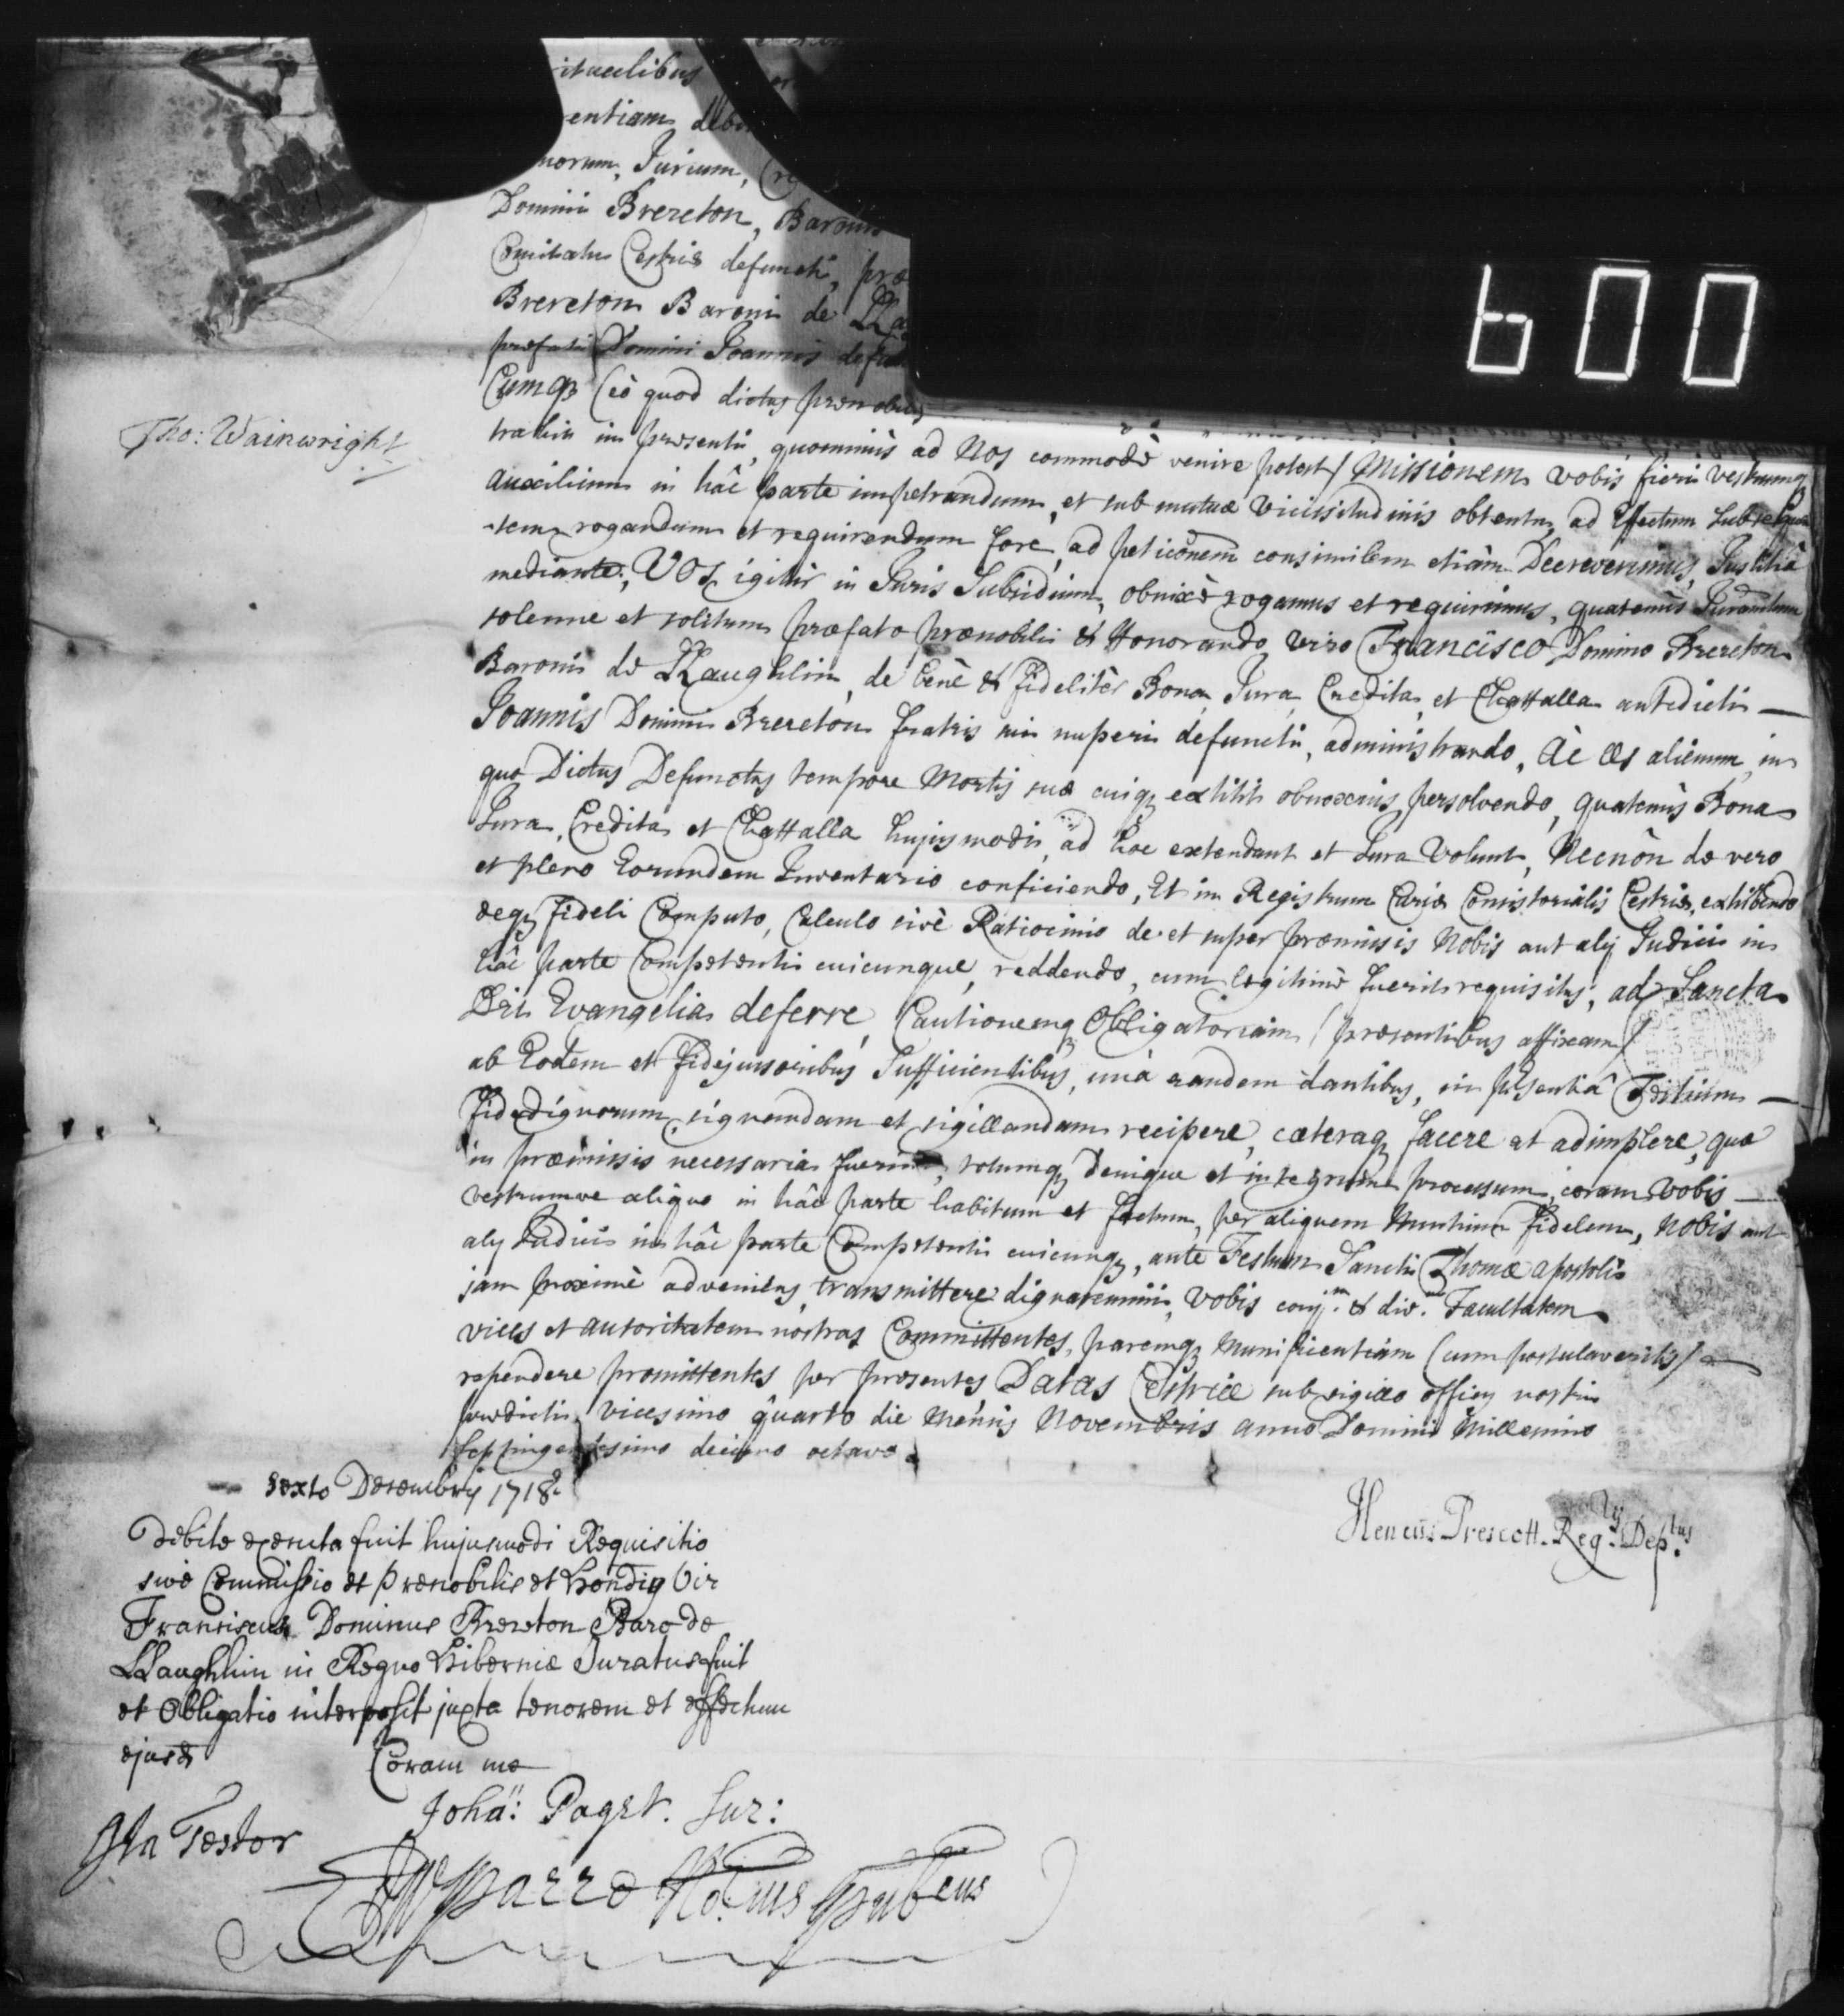 600
Tho: Wainwright
itualibus
entiam debi
norum, Jurium, Cre
Domini Brereton, Baronis
Comitatu Cestriæ defuncti, præ
Brereton Baroni de
præfati Domini Joannis defun
Cumq; (eò quod dictus prænobilis
in præsenti, quominùs ad Nos commodè venire potest) Missionem vobis fieri vestrumq;
Auxilium in hâc parte impetrandum, et sub mutuæ Vicissitudinis obtentu, ad Effectum subsequen
-tem rogandum et requirendum fore, ad peticõnem consimilem etiàm Decreverimus, Justitiâ
mediante; VOS igitur in Juris Subsidium, obnixè rogamus et requirimus, quatenùs Juramentum
solenne et solitum præfato prænobili & Honorando viro Francisco Domino Brereton
Baroni de LLaughlin, de benè & fidelitèr Bona, Jura, Credita, et Chattalla antedicti —
Joannis Domini Brereton fratris sui nuperi defuncti, administrando, Ac æs alienum, in
quo Dictus Defunctus tempore Mortis suæ cuiq; extitit obnoxius, persolvendo, quatenùs Bona
Jura, Credita et Chattalla hujusmodi, ad hoc extendant et Jura Volunt, Necnòn de vero
et pleno Eorundem Inventario conficiendo, Et in Registrum Curiæ Consistorialis Cestriæ, exhibendo
deq; fideli Computo, Calculo sivè Ratiocinio de et super præmissis Nobis aut alij Judici in
hâc parte Competenti cuicunque, reddendo, cum legitimè fuerit requisitus; ad Sancta
Dei Evangelia deferre, Cautionemq; Obligatoriam (præsentibus affixam)
ab Eodem et fidejussoribus Sufficientibus, unà eandem dantibus, in præsentiâ Testium —
fidedignorum, signandam et sigillandam recipere, cæteraq; facere et adimplere, quæ
in præmissis necessaria fuerint, totumq; denique et integrum processum, coram Vobis —
vestrumve aliquo in hâc parte habitum et factum, per aliquem Nuntium fidelem, Nobis aut
alij Judici in hâc parte Competenti cuicunq;, ante Festum Sancti Thomæ Apostoli
jam proximè adveniens, transmittere dignaremini, Vobis conj.m & div. Facultatem
vices et autoritatem nostras Committentes, paremq; Munificentiam (cum postulaveritis)
rependere promittentes per præsentes Datas Cestriæ sub sigillo officij nostri
prædicti, vicesimo quarto die Mensis Novembris anno Domini Millesimo
septingentesimo decimo octavo.
Hencus Prescott. Reg.rijs Dep.tus
sexto Decembris 1718°
Debite executa fuit hujusmodi Requisitio
sive Commissio et Prænobilis et Hond͠us Vir
Franciscus Dominus Brereton Baro de
LLaughlin in Regno Hiberniæ Juratus fuit
et Obligatio interposit juxta tenorem et effectum
ejusd
Coram me
Johã: Paget. Sur:
Ita Testor
Parre Notius Pubcus